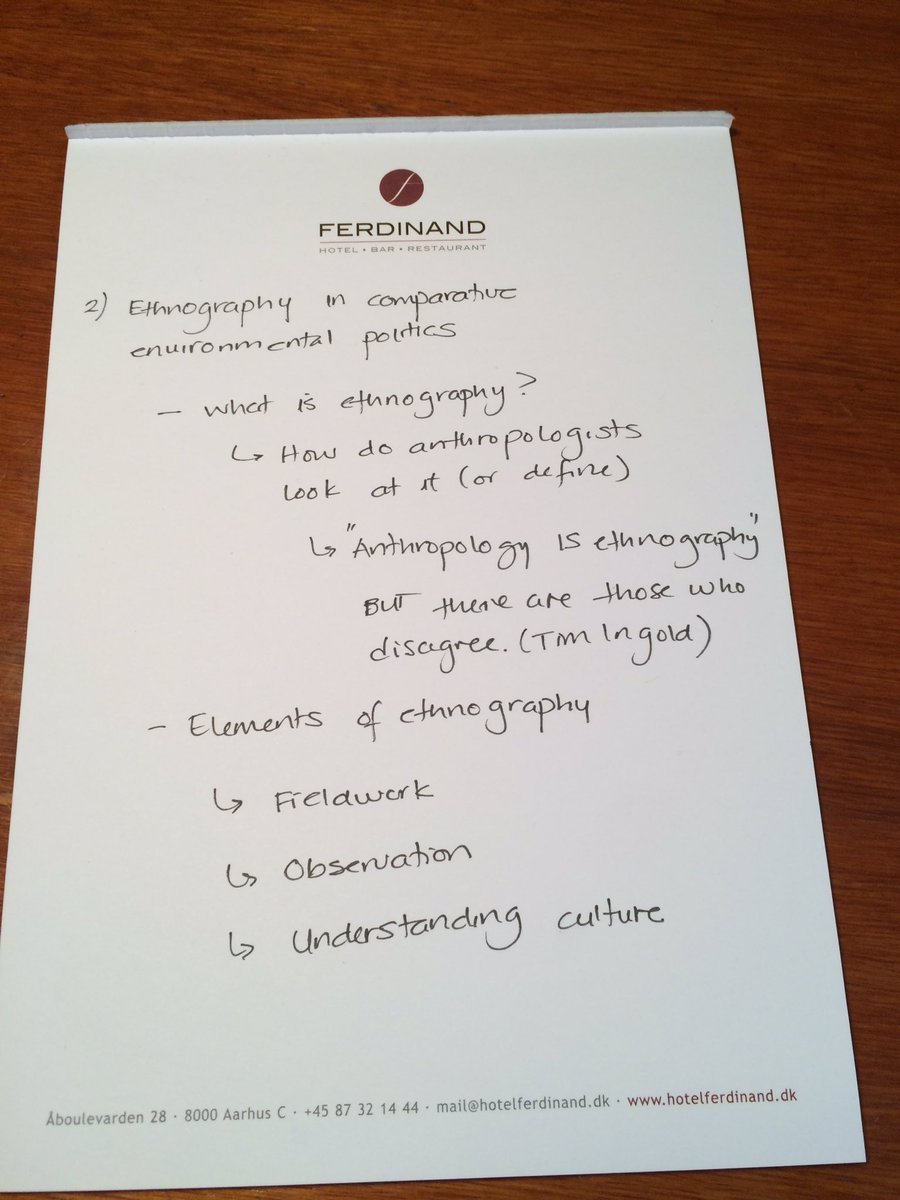 FERDINAND
HOTEL • BAR • RESTAURANT
2) Ethnography in comparative
environmental politics
- What is ethnography?
↳ How do anthropologists
look at it (or define)
↳ "Anthropology IS ethnography"
BUT there are those who
disagree. (Tim Ingold)
- Elements of ethnography
↳ Fieldwork
↳ Observation
↳ Understanding culture
Åboulevarden 28 · 8000 Aarhus C · +45 87 32 14 44 · mail@hotelferdinand.dk · www.hotelferdinand.dk